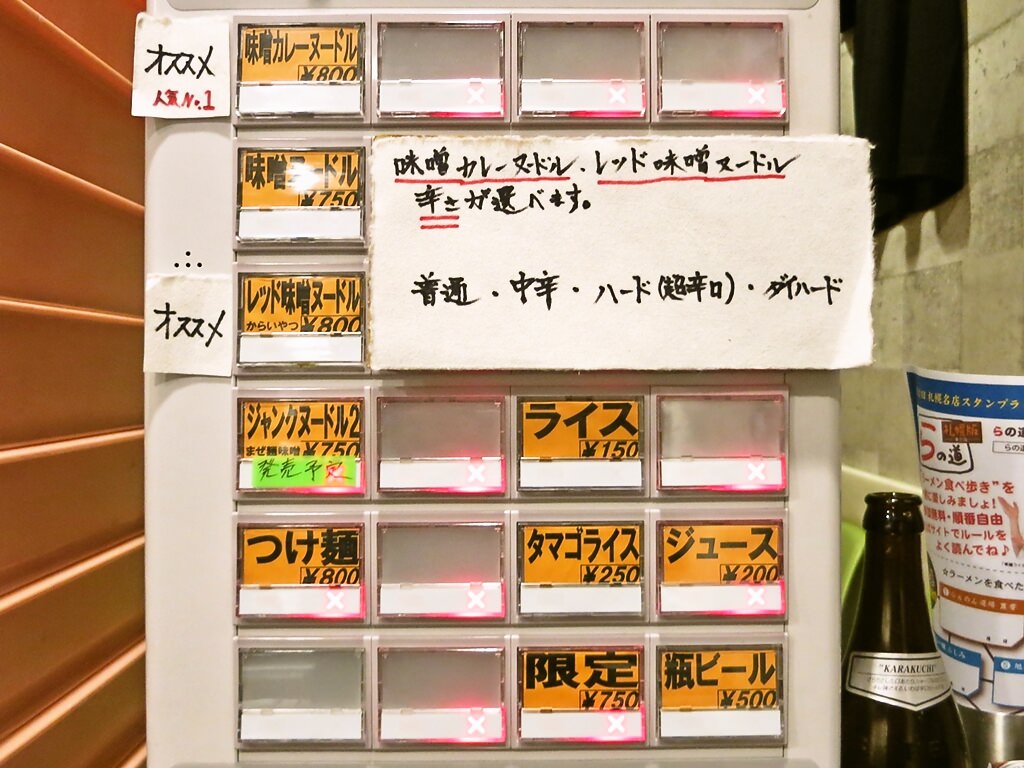 オススメ
人気No.1
味噌カレーヌードル
¥800
味噌ヌードル
¥750
味噌カレーヌードル、レッド味噌ヌードル
辛さが選べます。
普通・中辛・ハード(超辛口)・ダイハード
オススメ
レッド味噌ヌードル
からいやつ ¥800
ジャンクヌードル2
まぜ麺味噌 ¥750
発売予定
ライス
¥150
つけ麺
¥800
タマゴライス
¥250
ジュース
¥200
限定
¥750
瓶ビール
¥500
"KARAKUCHI"
札幌名店スタンプラ
札幌版
らの道
らの道
ーメン食べ歩き"を
に楽しみましょ!
無料・順番自由
サイトでルールを
よく読んでね♪
☆ラーメンを食べた